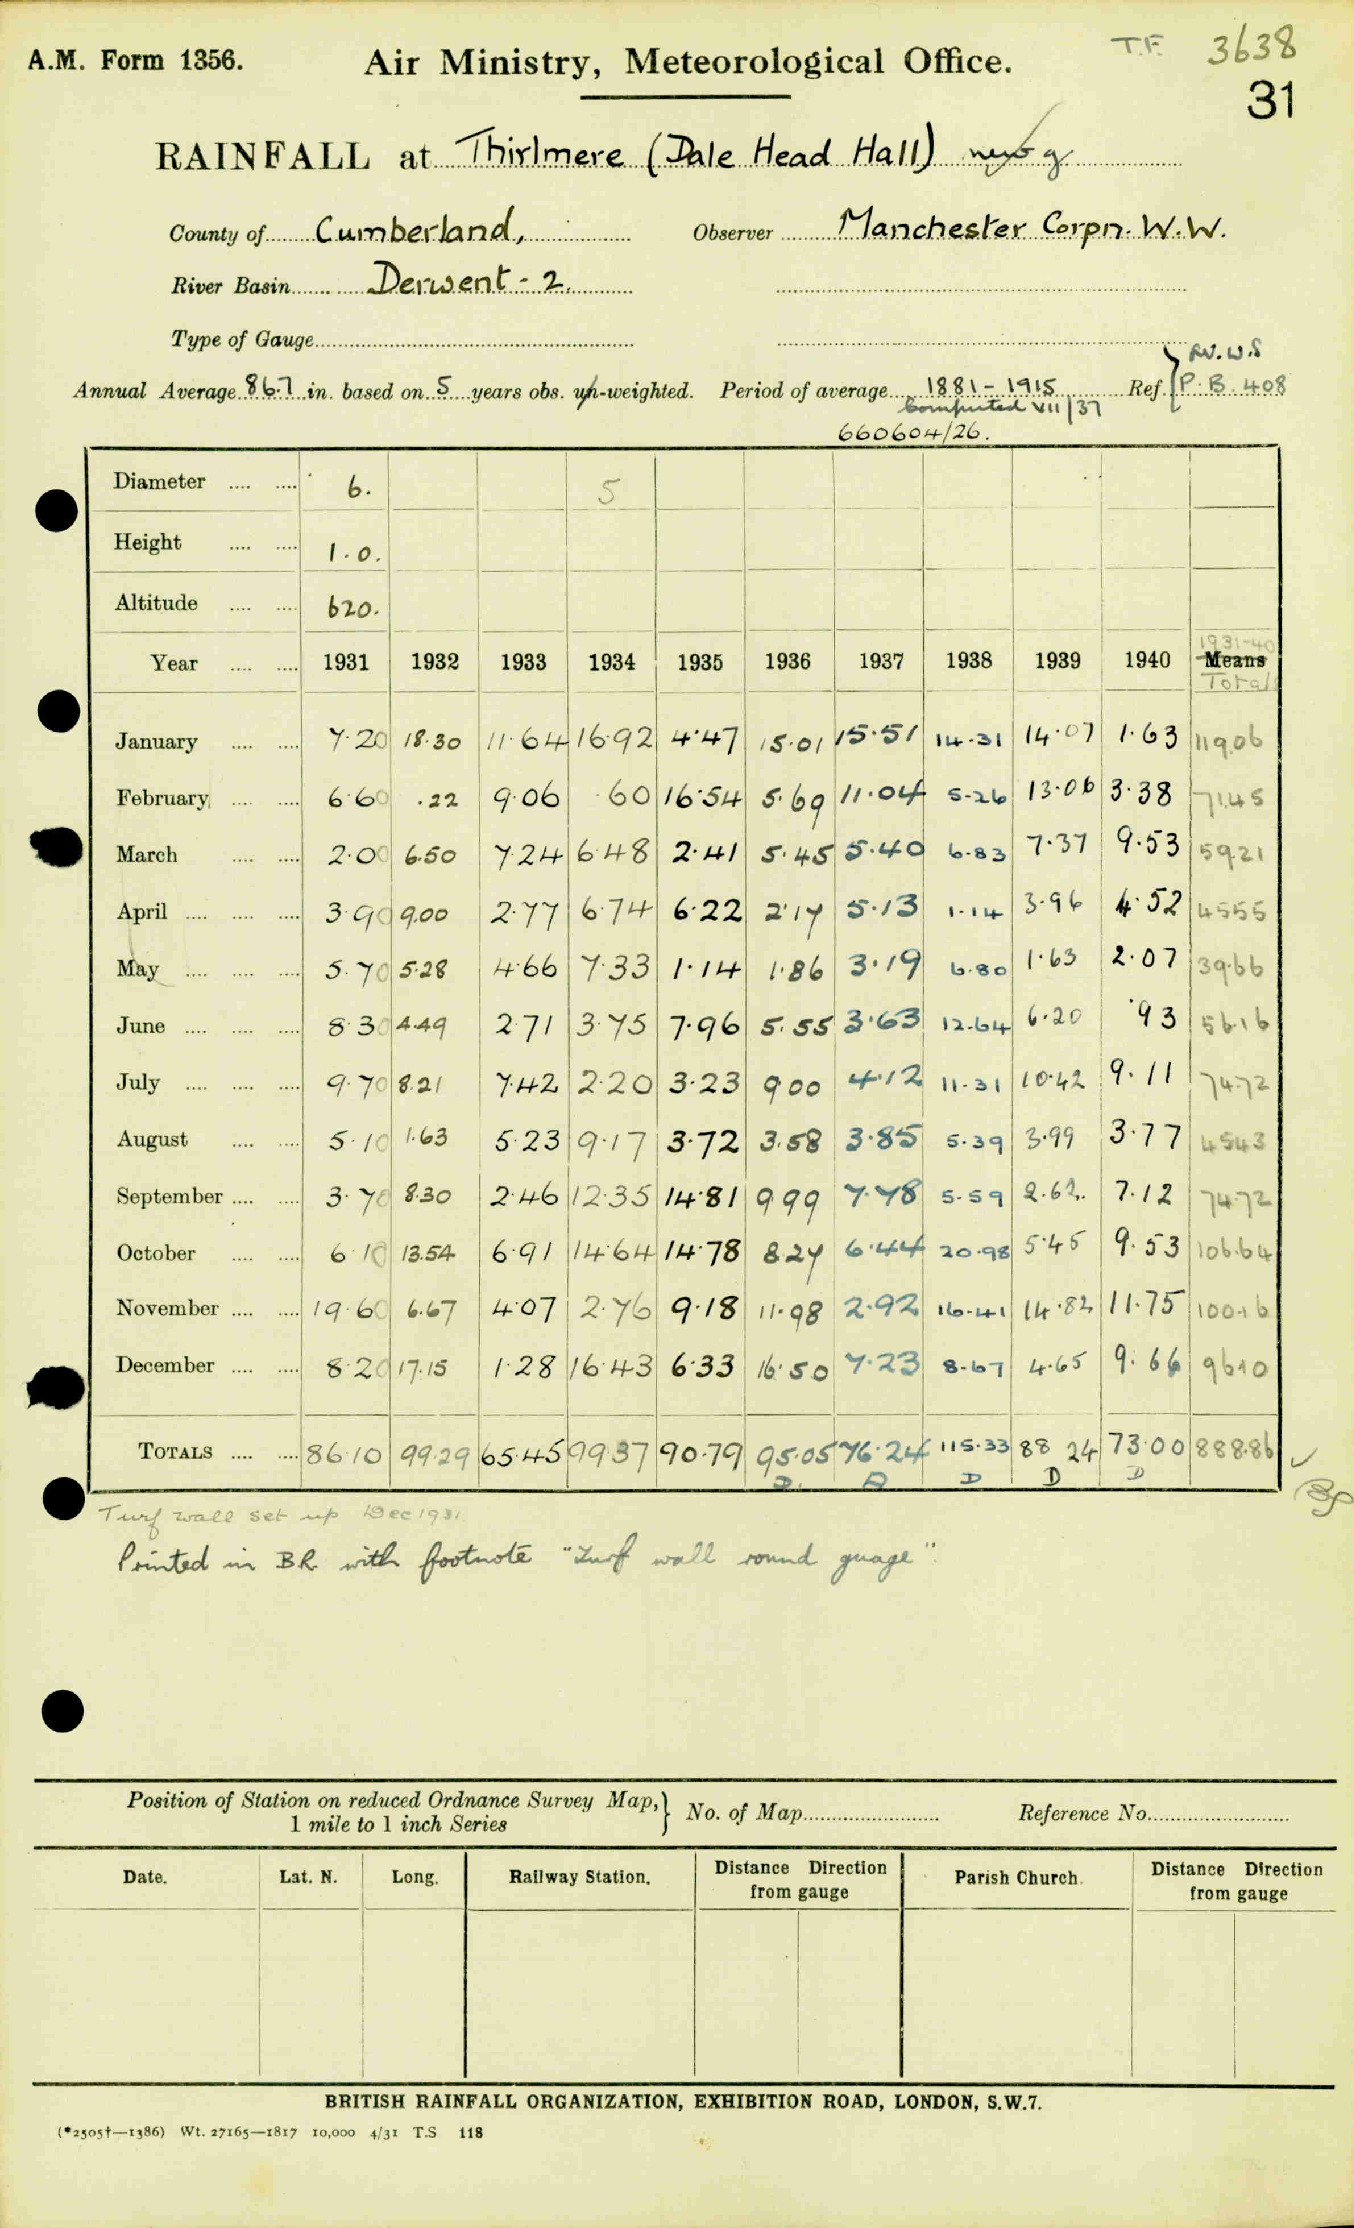 A.M. Form 1356.
Air Ministry, Meteorological Office.
T.F. 3638
31
RAINFALL at Thirlmere (Dale Head Hall)
County of Cumberland, Observer Manchester Corpn. W.W.
River Basin Derwent - 2.
Type of Gauge
Annual Average 86.7 in. based on 5 years obs. un-weighted. Period of average 1881 - 1915 Ref. P.B. 408
Computed VII/37
660604/26.
Diameter .... .... 6. 5
Height .... .... 1.0.
Altitude .... .... 620.
1931-40
Year .... .... 1931 1932 1933 1934 1935 1936 1937 1938 1939 1940 Means
Total
January .... .... 7.20 18.30 11.64 16.92 4.47 15.01 15.51 14.31 14.07 1.63 119.06
February .... .... 6.60 .22 9.06 .60 16.54 5.69 11.04 5.26 13.06 3.38 71.45
March .... .... 2.00 6.50 7.24 6.48 2.41 5.45 5.40 6.83 7.37 9.53 59.21
April .... .... .... 3.90 9.00 2.77 6.74 6.22 2.17 5.13 1.14 3.96 4.52 45.55
May .... .... .... 5.70 5.28 4.66 7.33 1.14 1.86 3.19 6.80 1.63 2.07 39.66
June .... .... .... 8.30 4.49 2.71 3.75 7.96 5.55 3.63 12.64 6.20 .93 56.16
July .... .... .... 9.70 8.21 7.42 2.20 3.23 9.00 4.12 11.31 10.42 9.11 74.72
August .... .... 5.10 1.63 5.23 9.17 3.72 3.58 3.85 5.39 3.99 3.77 45.43
September .... .... 3.70 8.30 2.46 12.35 14.81 9.99 7.78 5.59 2.62 7.12 74.72
October .... .... 6.10 13.54 6.91 14.64 14.78 8.27 6.44 20.98 5.45 9.53 106.64
November .... .... 19.60 6.67 4.07 2.76 9.18 11.98 2.92 16.41 14.82 11.75 100.16
December .... .... 8.20 17.15 1.28 16.43 6.33 16.50 7.23 8.67 4.65 9.66 96.10
TOTALS .... .... 86.10 99.29 65.45 99.37 90.79 95.05 76.24 115.33 88.24 73.00 888.86
D. D D D D
Turf wall set up Dec 1931
Printed in B.R. with footnote "Turf wall round guage".
Position of Station on reduced Ordnance Survey Map,
1 mile to 1 inch Series
No. of Map Reference No.
Date. Lat. N. Long. Railway Station. Distance Direction from gauge Parish Church. Distance Direction from gauge
BRITISH RAINFALL ORGANIZATION, EXHIBITION ROAD, LONDON, S.W.7.
(*2505†—1386) Wt. 27165—1817 10,000 4/31 T.S 118